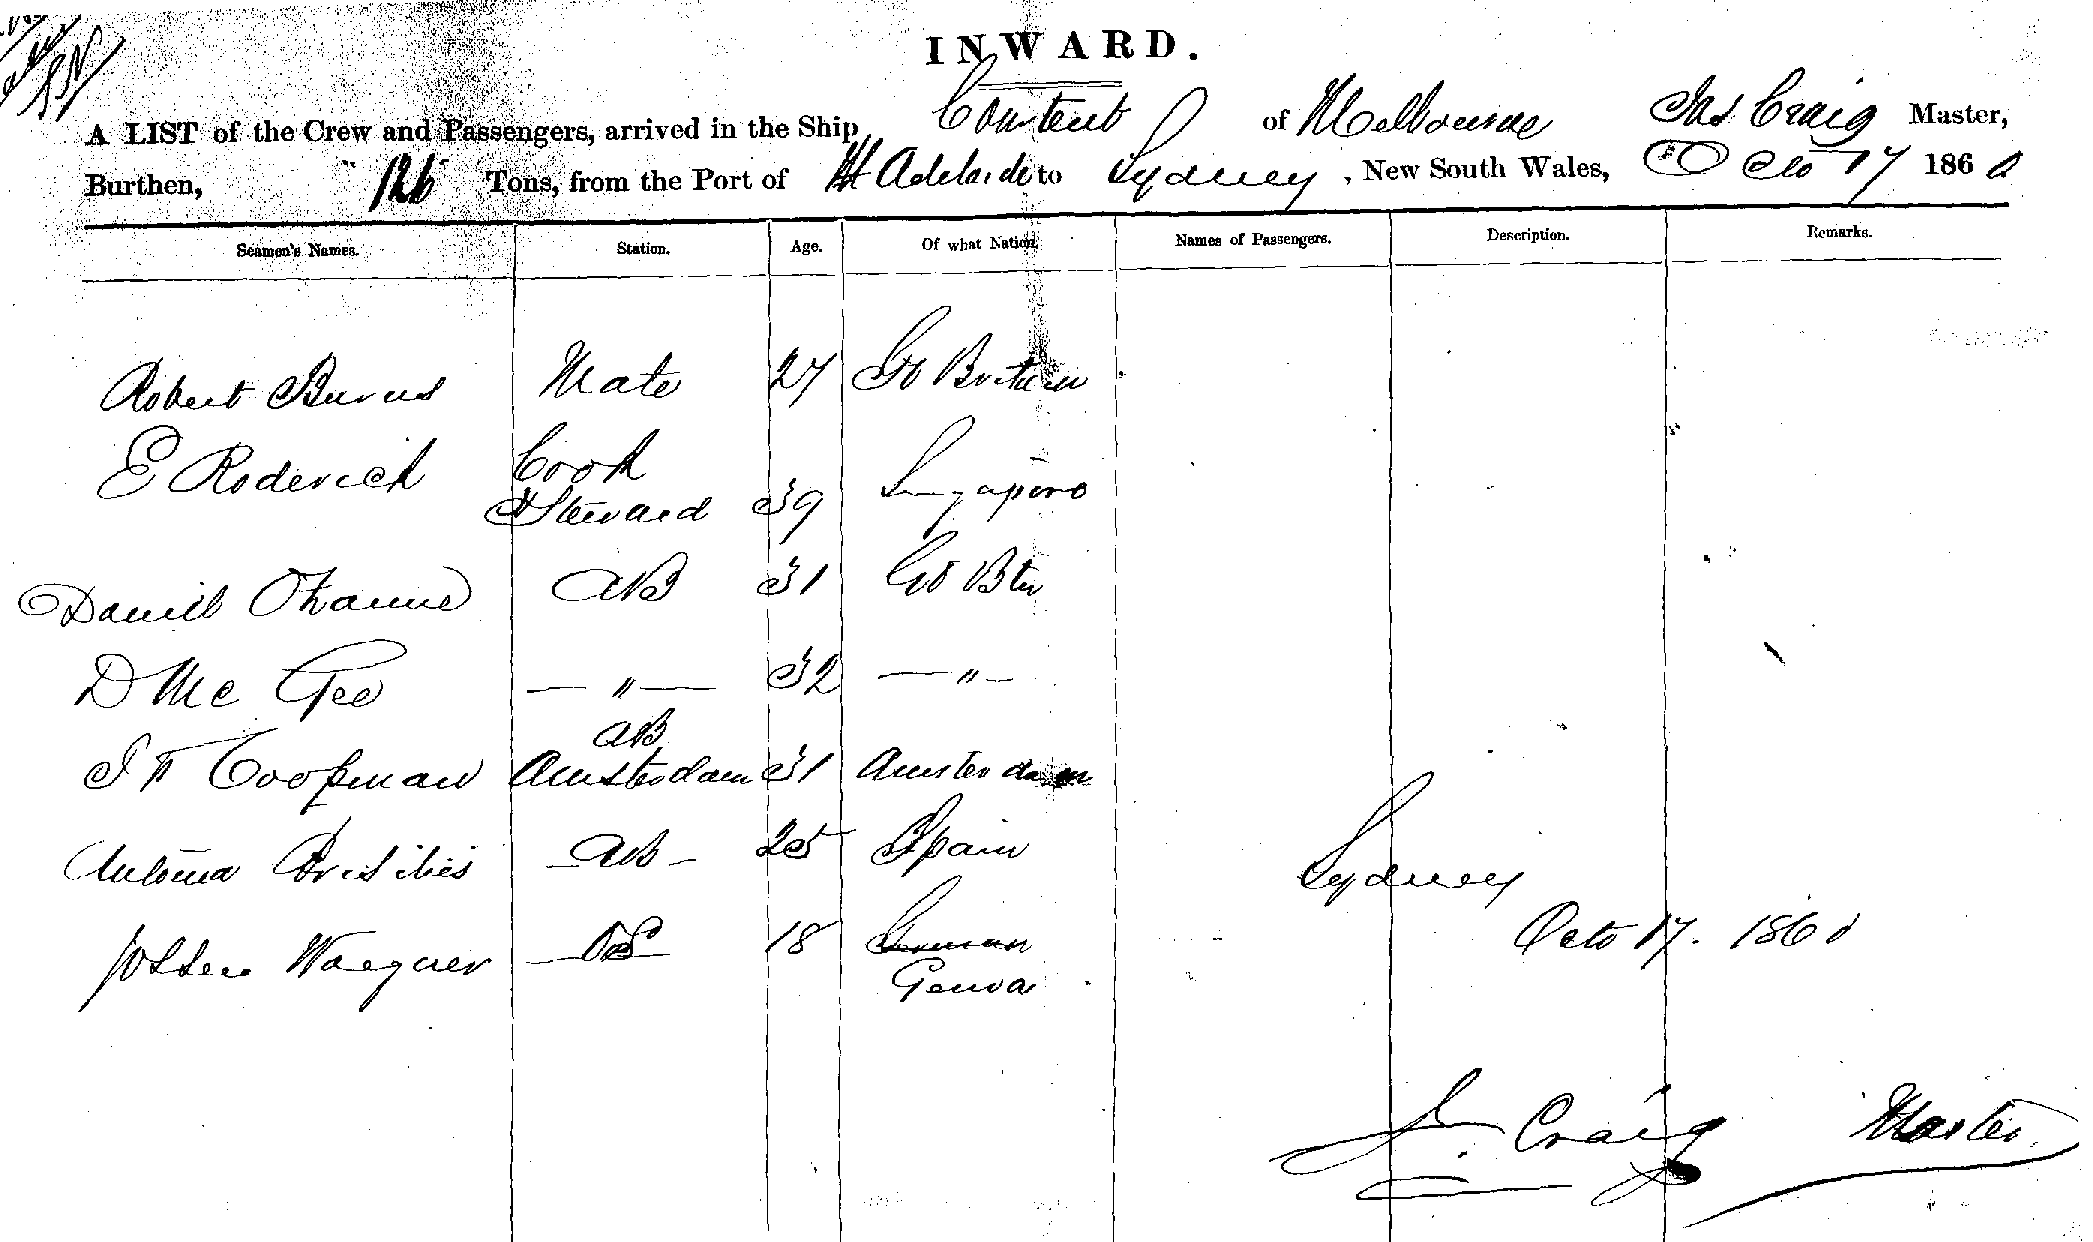 INWARD.
A LIST of the Crew and Passengers, arrived in the Ship Content of Melbourne Jas Craig Master,
Burthen, 126 Tons, from the Port of Pt Adelaide to Sydney, New South Wales, Octo 17 1860
Seamen's Names. Station. Age. Of what Nation. Names of Passengers. Description. Remarks.
Robert Burns Mate 27 Gt Britain
E Roderick Cook
& Steward 39 Singapore
Daniel AB 31 Gt Btn
D Mc Gee — " — 32 — " —
AB
Coopman Amsterdam 31 Amsterdam
AB 25 Spain
Waegner OS 18 German
Genoa
Sydney
Octo 17. 1860
J. Craig Master